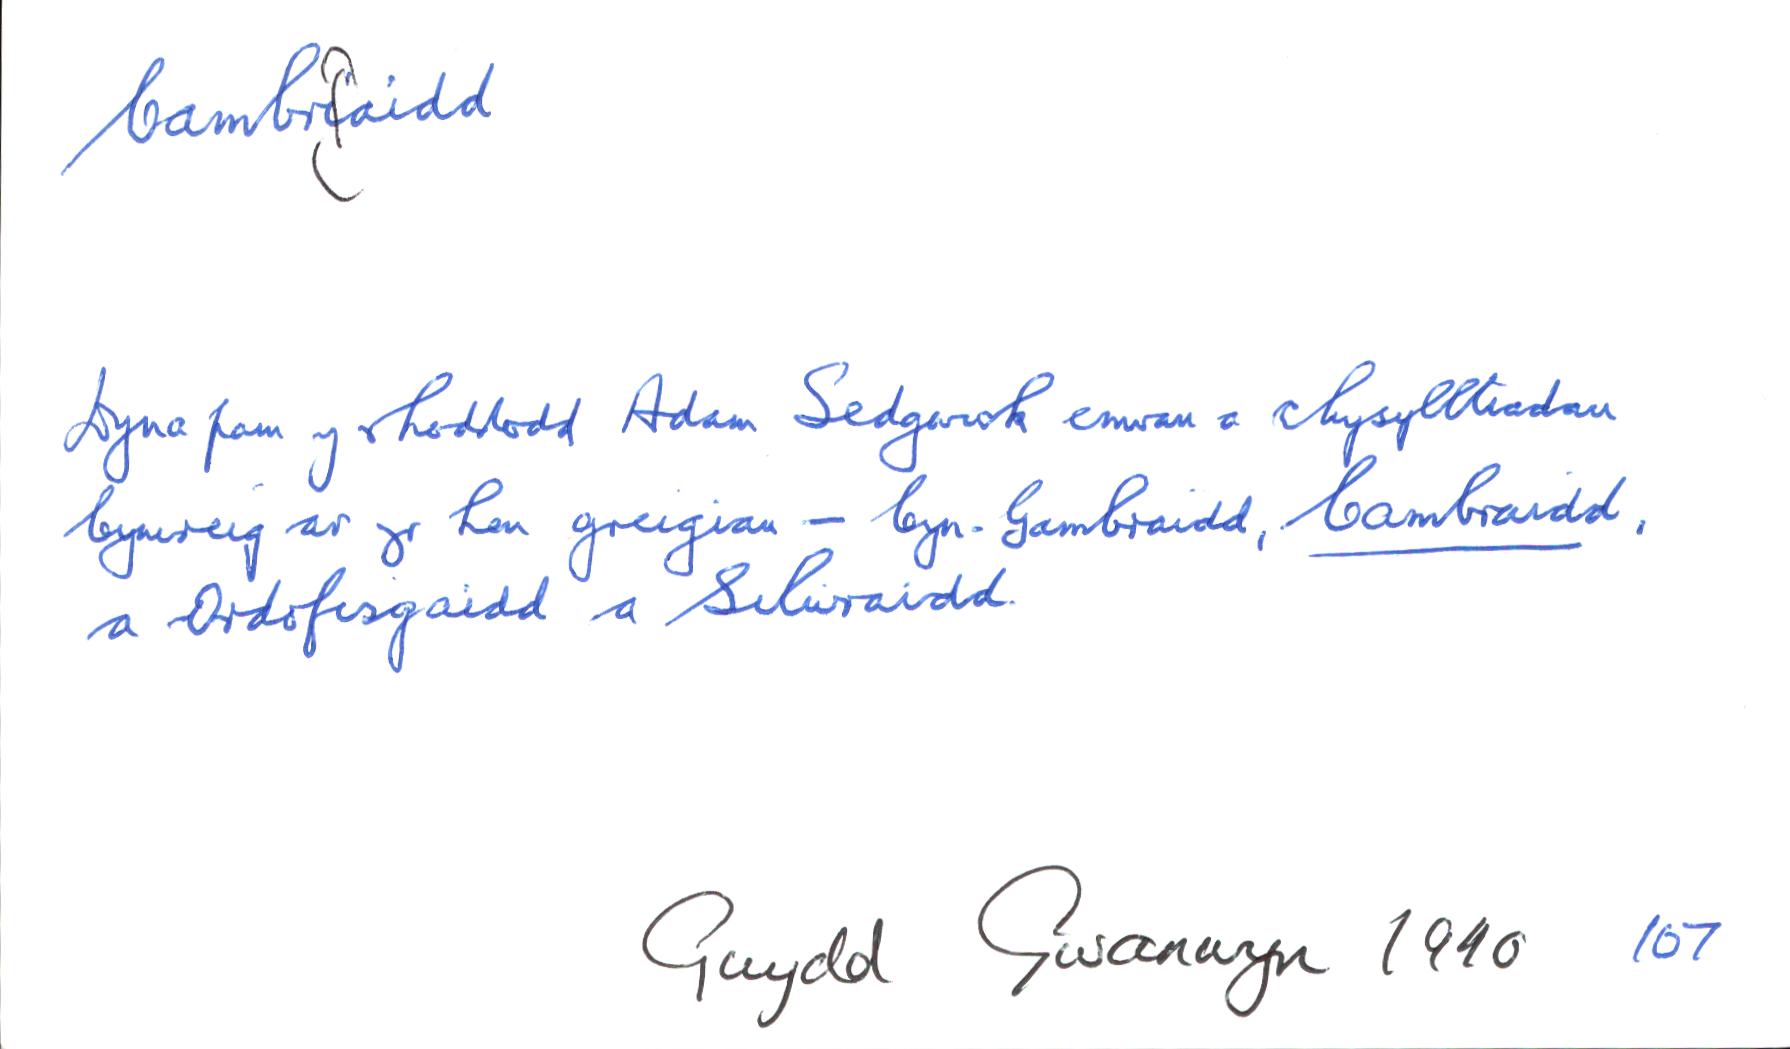 Cambriaidd
Dyna pam y rhoddodd Adam Sedgwick enwau a chysylltiadau
Cymreig ar yr hen greigiau – Cyn-Gambraidd, Cambraidd,
a Ordofisgaidd a Silwraidd.
Gwydd Gwanwyn 1990 107